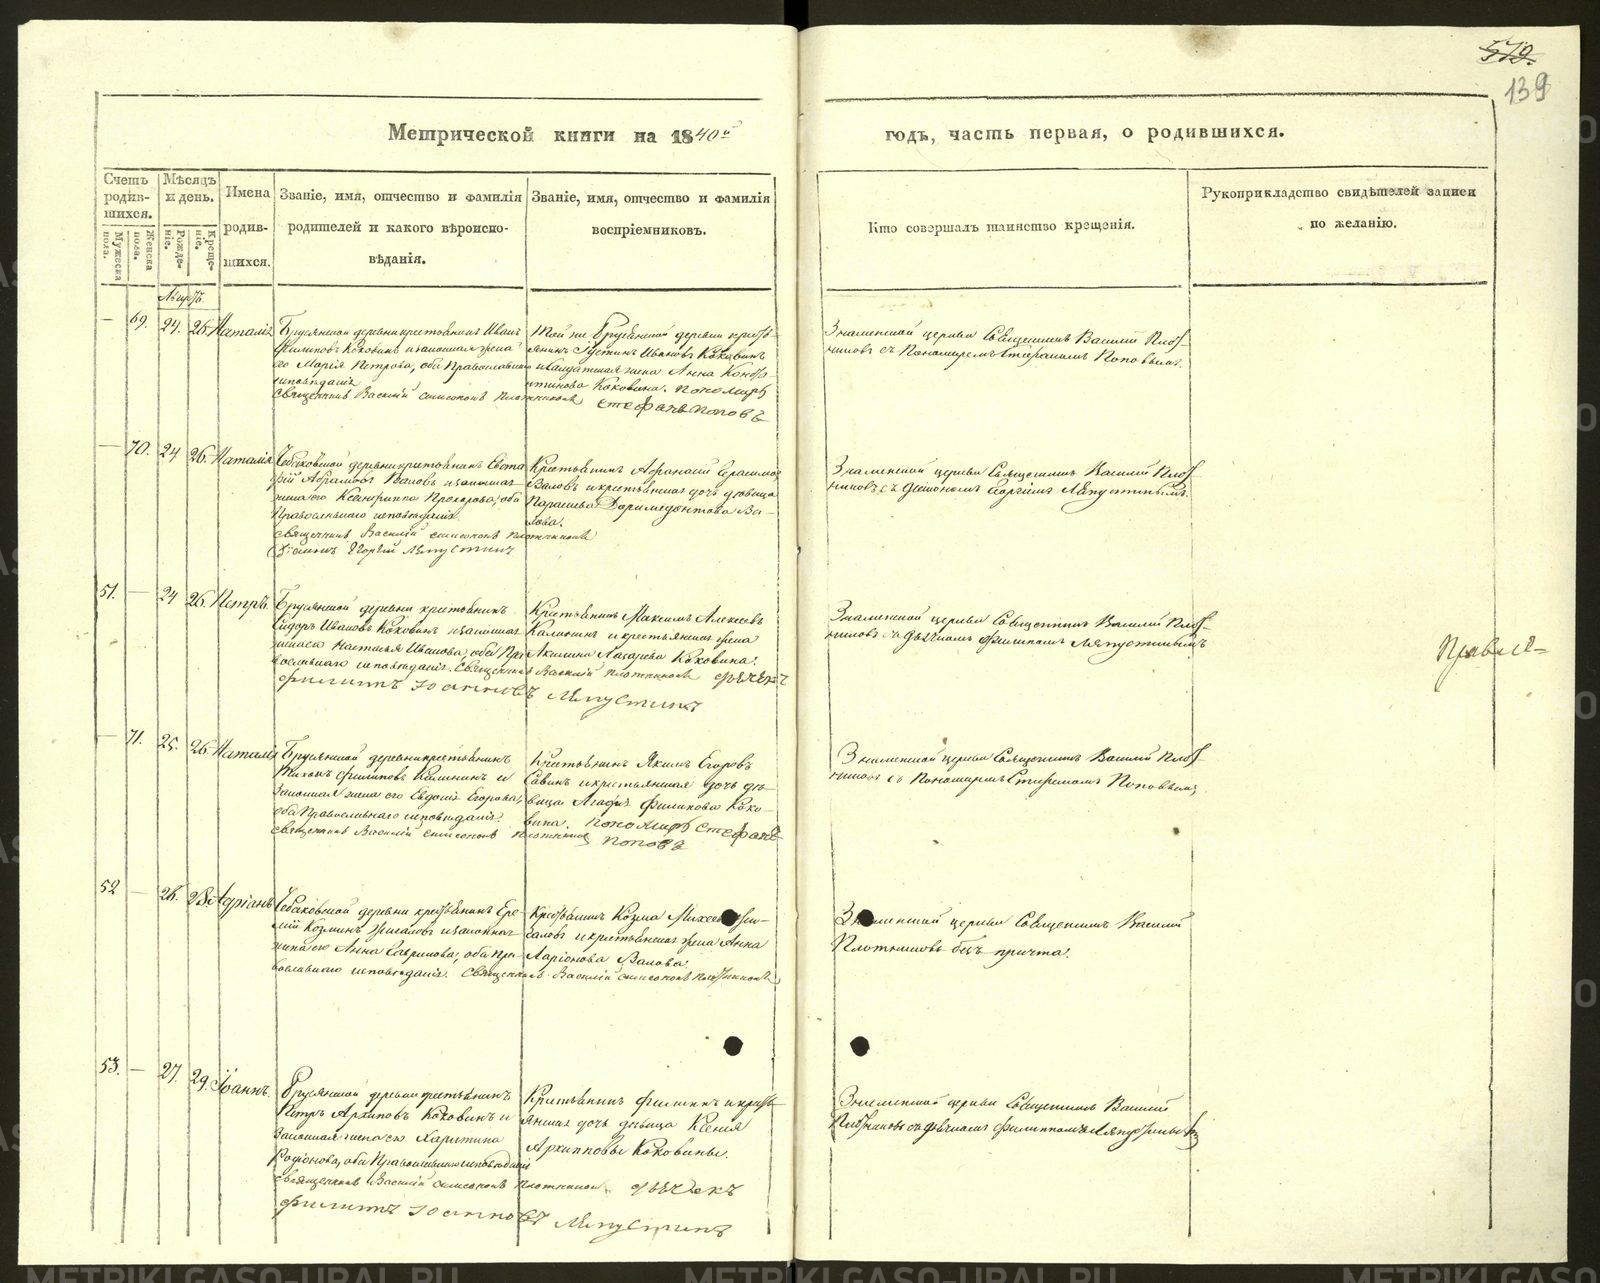 579.
139
Метрической книги на 1840й
годъ, часть первая, о родившихся.
Счетъ родив-шихся.
Мужеска пола.
Женска пола.
Мѣсяцъ и день.
Рожде-ніе.
Креще-ніе.
Имена родив-шихся.
Званіе, имя, отчество и фамилія
родителей и какого вѣроиспо-
вѣданія.
Званіе, имя, отчество и фамилія
воспріемниковъ.
Кто совершалъ таинство крещенія.
Рукоприкладство свидѣтелей записи
по желанію.
Августъ.
— 69. 24. 25. Наталія
Брусянской деревни крестьянинъ Иванъ
Филиповъ Коковинъ и законная жена
его Марія Петрова, оба Православнаго
исповѣданія
Священникъ Василій Симеоновъ Плотниковъ
Той же Брусянской деревни кресть-
янинъ Іустинъ Ивановъ Коковинъ
и солдатская жена Анна Конста-
нтинова Коковина. Пономарь
Стефанъ Поповъ
Знаменской церкви Священникъ Василій Плот-
никовъ съ Пономаремъ Стефаномъ Поповымъ.
— 70. 24 26. Наталія
деревни крестьянинъ Евста-
фій Абрамовъ Валовъ и законная
жена его Прохорова, оба
Православнаго исповѣданія.
Священникъ Василій Симеоновъ Плотниковъ
Діаконъ Георгій Ляпустинъ
Крестьянинъ Афанасій Герасимов
Валовъ и крестьянская дочь дѣвица
Параскева Доримедонтова Ва-
лова.
Знаменской церкви Священникъ Василій Плот-
никовъ съ Діакономъ Георгіемъ Ляпустинымъ.
51. — 24 26. Петръ.
Брусянской деревни крестьянинъ
Сидоръ Ивановъ Коковинъ и законная
жена его Настасья Иванова, оба Пра-
вославнаго исповѣданія. Священникъ Василій Плотниковъ Дьячекъ
Филиппъ Іоанновъ Ляпустинъ
Крестьянинъ Максимъ Алексеевъ
Калининъ и крестьянская жена
Акилина Лазарева Коковина.
Знаменской церкви Священникъ Василій Плот-
никовъ съ Дьячкомъ Филипомъ Ляпустинымъ
— 71. 25. 26. Наталія
Брусянской деревни крестьянинъ
Тихонъ Филиповъ Калининъ и
законная жена его Евдокія Егорова,
оба Православнаго исповѣданія.
Священникъ Василій Симеоновъ Плотниковъ
Крестьянинъ Якимъ Егоровъ
Савинъ и крестьянская дочь дѣ-
вица Агафія Филипова Коко-
вина. Пономарь Стефанъ
Поповъ
Знаменской церкви Священникъ Василій Плот-
никовъ съ Пономаремъ Стефаномъ Поповымъ
52 — 26. 28. Адріанъ
деревни крестьянинъ Ере-
мій Козминъ и законная
жена его Анна Гаврилова, оба пра-
вославнаго исповѣданія. Священникъ Василій Симеоновъ Плотниковъ
Крестьянинъ Козма
и крестьянская жена Анна
Ларіонова Валова.
Знаменской церкви Священникъ Василій
Плотниковъ безъ причта.
53. — 27. 29. Іоаннъ.
Брусянской деревни крестьянинъ
Петръ Архиповъ Коковинъ и
законная жена его Харитина
Родіонова, оба Православнаго исповѣданія
Священникъ Василій Симеоновъ Плотниковъ. Дьячекъ
Филиппъ Іоанновъ Ляпустинъ
Крестьянинъ Филипъ и кресть-
янская дочь дѣвица Ксенія
Архиповы Коковины.
Знаменской церкви Священникъ Василій
Плотниковъ съ Дьячкомъ Филиппомъ Ляпустинымъ
METRIKI.GASO-URAL.RU